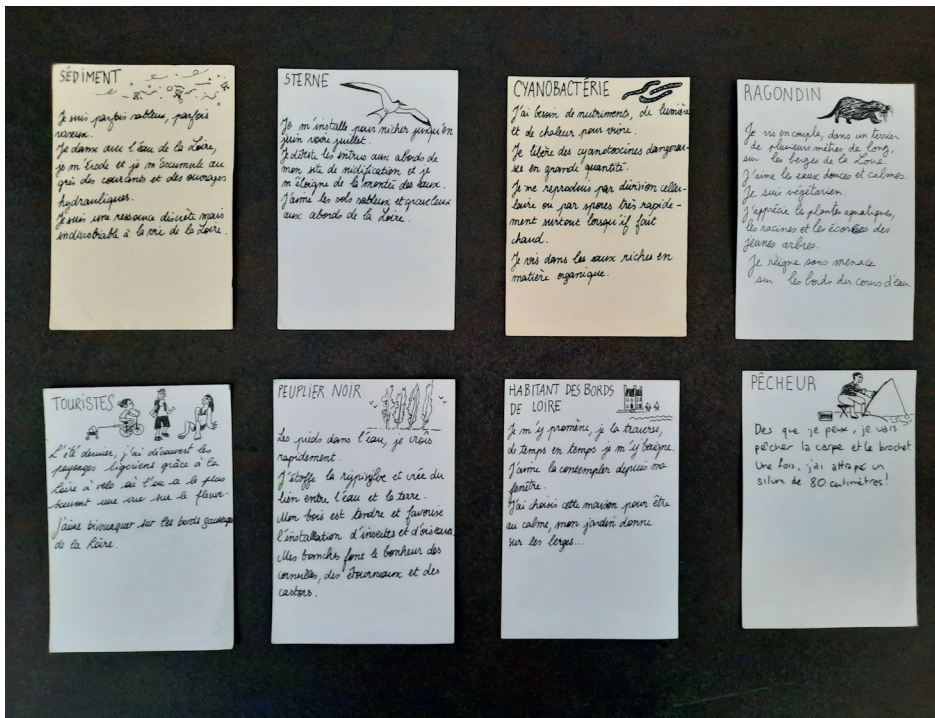 SÉDIMENT
Je suis parfois sableux, parfois
vaseux.
Je danse avec l'eau de la Loire,
je m'érode et je m'accumule au
grès des courants et des ouvrages
hydrauliques.
Je suis une ressource discrète mais
indissociable à la vie de la Loire.
STERNE
Je m'installe pour nicher jusqu'en
juin voire juillet.
Je déteste les intrus aux abords de
mon site de nidification et je
m'éloigne de la montée des eaux.
J'aime les sols sableux et graveleux
aux abords de la Loire.
CYANOBACTÉRIE
J'ai besoin de nutriments, de lumière
et de chaleur pour vivre.
Je libère des cyanotoxines dangereu-
se en grande quantité.
Je me reproduis par division cellu-
laire ou par spores très rapide-
ment surtout lorsqu'il fait
chaud.
Je vis dans les eaux riches en
matière organique.
RAGONDIN
Je vis en couple, dans un terrier
de plusieurs mètres de long,
sur les berges de la Loire.
J'aime les eaux douces et calmes.
Je suis végétarien.
J'apprécie les plantes aquatiques,
les racines et les écorces des
jeunes arbres.
Je règne sans menace
sur les bords des cours d'eau
TOURISTES
L'été dernier, j'ai découvert les
paysages ligériens grâce à la
Loire à vélo où l'on a le plus
souvent une vue sur le fleuve.
J'aime bivouaquer sur les bords sauvages
de la Loire.
PEUPLIER NOIR
Les pieds dans l'eau, je croîs
rapidement.
J'étoffe la ripisylve et crée du
lien entre l'eau et la terre.
Mon bois est tendre et favorise
l'installation d'insectes et d'oiseaux.
Mes branches font le bonheur des
corneilles, des étourneaux et des
castors.
HABITANT DES BORDS
DE LOIRE
Je m'y promène, je la traverse,
de temps en temps je m'y baigne.
J'aime la contempler depuis ma
fenêtre.
J'ai choisi cette maison pour être
au calme, mon jardin donne
sur les berges...
PÊCHEUR
Des que je peux, je vais
pêcher la carpe et le brochet
Une fois, j'ai attrapé un
silure de 80 centimètres!